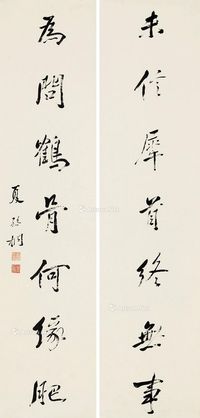 未信犀首終無事
為問鶴骨何緣肥
夏孫桐